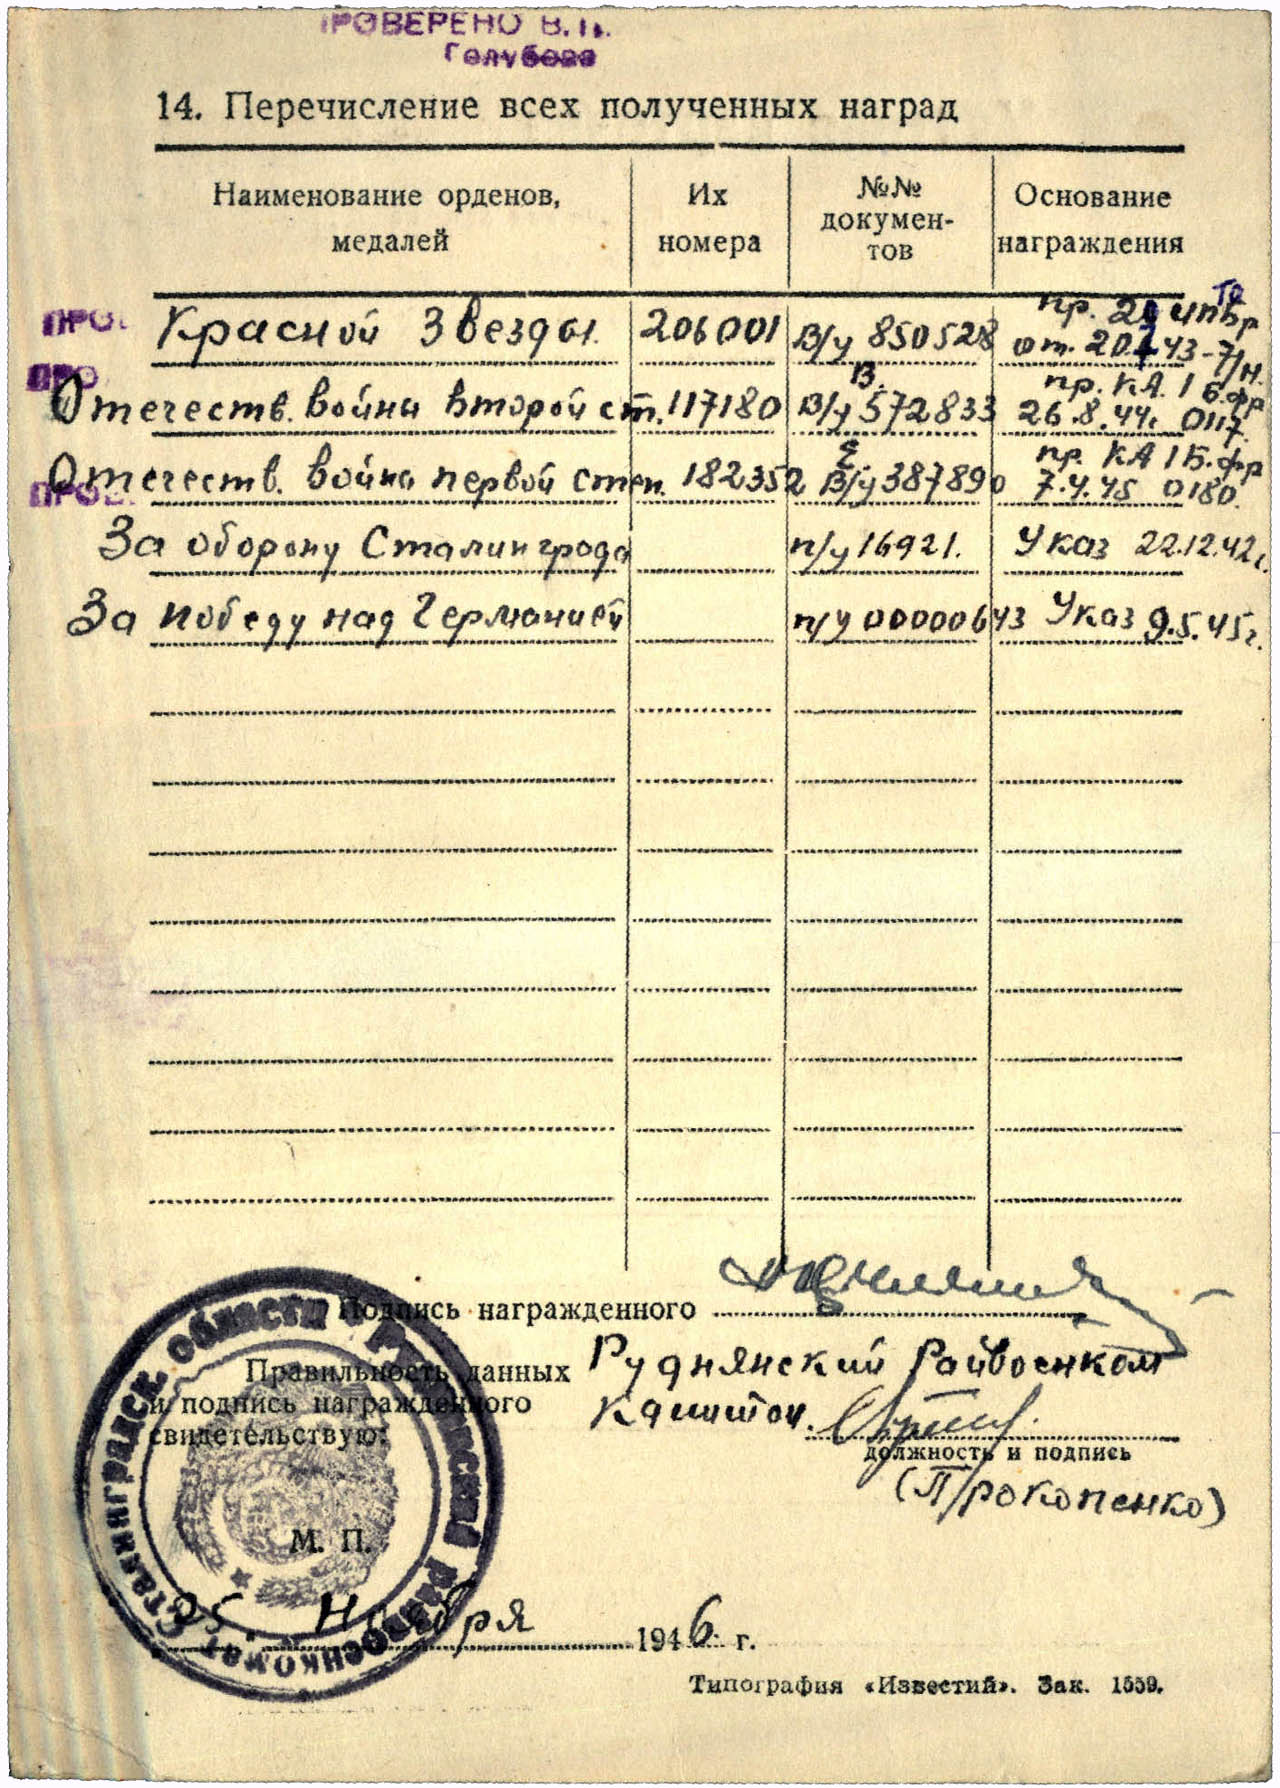 ПРОВЕРЕНО В.П.
Голубева
14. Перечисление всех полученных наград
Наименование орденов, медалей
Их номера
№№ докумен-тов
Основание награждения
ПРО
Красной Звезды. 206001 В/у 850528 пр. от. 43-7/н.
ПРО
Отечеств. война второй ст. 117180 В/у 572833 В. пр. КА. 1 Б.фр 26.8.44г. 0117.
Отечеств. война первой степ. 182352 В/у 387890 пр. КА 1Б.фр 7.4.45 0180.
ПРОВ
За оборону Сталинграда п/у 16921. Указ 22.12.42г.
За победу над Германией п/у 00000643 Указ 9.5.45г.
Подпись награжденного
Правильность данных Руднянский Райвоенком
и подпись награжденного Капитан.
свидетельствую:
должность и подпись
(Прокопенко)
М. П.
25. Ноября 1946 г.
Сталинградск. области Руднянский райвоенкомат
Типография «Известий». Зак. 1559.